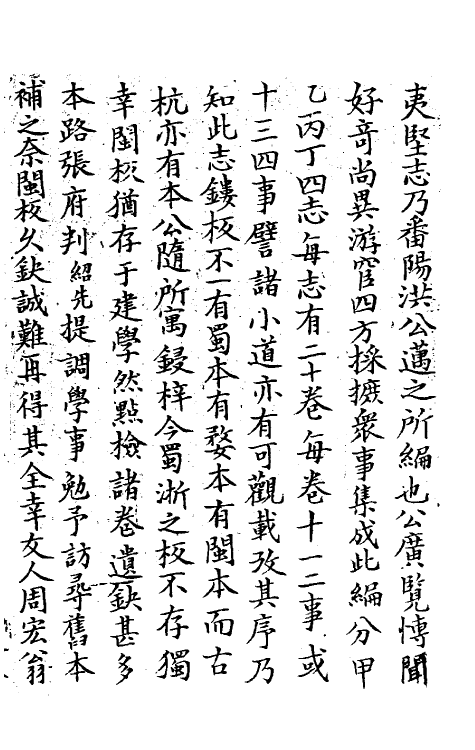 夷堅志乃番陽洪公邁之所編也公廣覽慱聞
好竒尚異游宦四方採摭衆事集成此編分甲
乙丙丁四志每志有二十卷每卷十一二事或
十三四事譬諸小道亦有可觀載攷其序乃
知此志鏤板不一有蜀本有婺本有閩本而古
杭亦有本公隨所寓鋟梓今蜀浙之板不存獨
幸閩板猶存于建學然點檢諸卷遺缺甚多
本路張府判紹先提調學事勉予訪尋舊本
補之奈閩板久缺誠難再得其全幸友人周宏翁